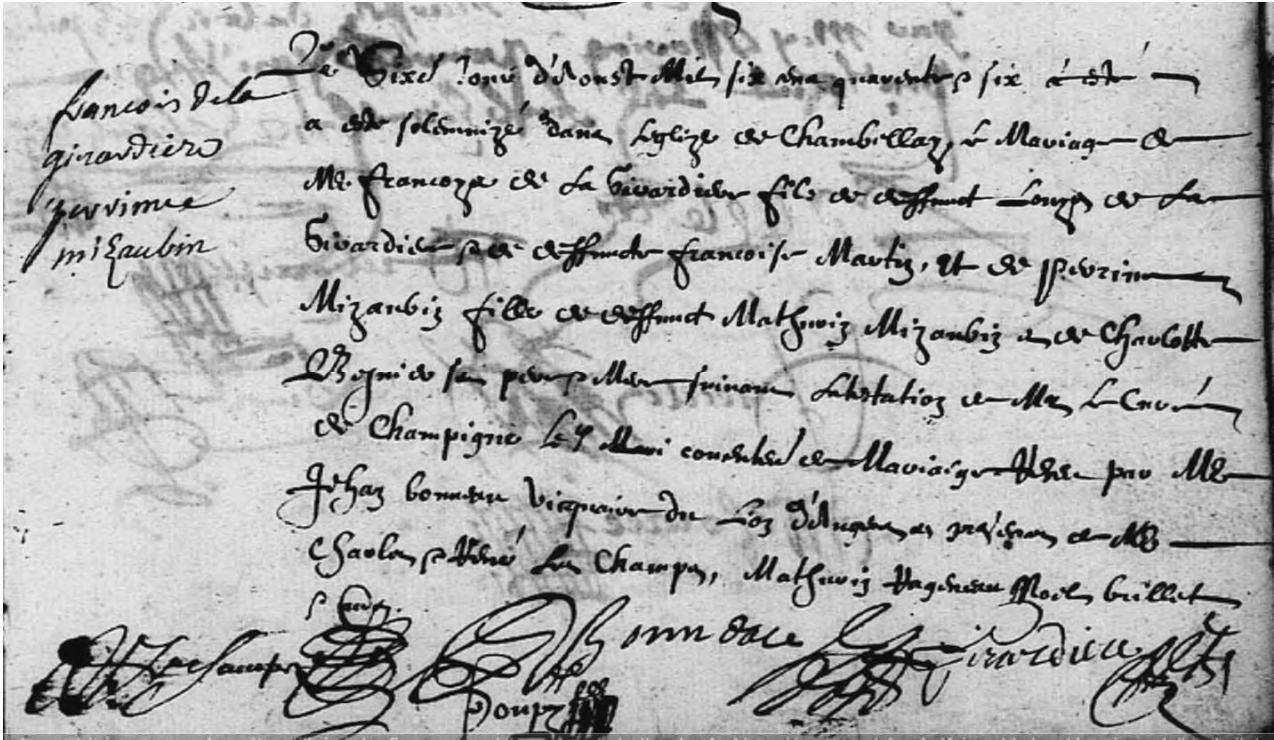 francois dela
girardiere
perrinne
mizaubin
Le Sixe Jour d'Aoust Mil six cens quarente & six a esté
a esté solemnizé dans Leglize de Chambellay, le Mariage de
Mr. francoys de La Girardiere fils de deffunct Louys de La
Girardiere & de deffuncte francoise Martin, Et de Perrine
Mizaubin fille de deffunct Mathurin Mizaubin & de Charlotte
ses pere & Mere suivant Latestation de Mr Le Curé
de Champigne de Mariaige par Mre
Jehan bonneau Vicquaire du Lion d'Angers es presences de Mre
Charles & René Les Champs, Mathurin Rageneau Noel brillet
Deschamps
Bonneau
Girardiere